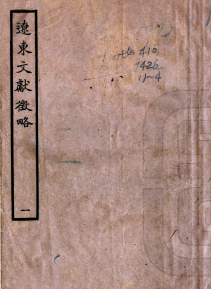 遼東文獻徵略
一
410.
1426
1-4